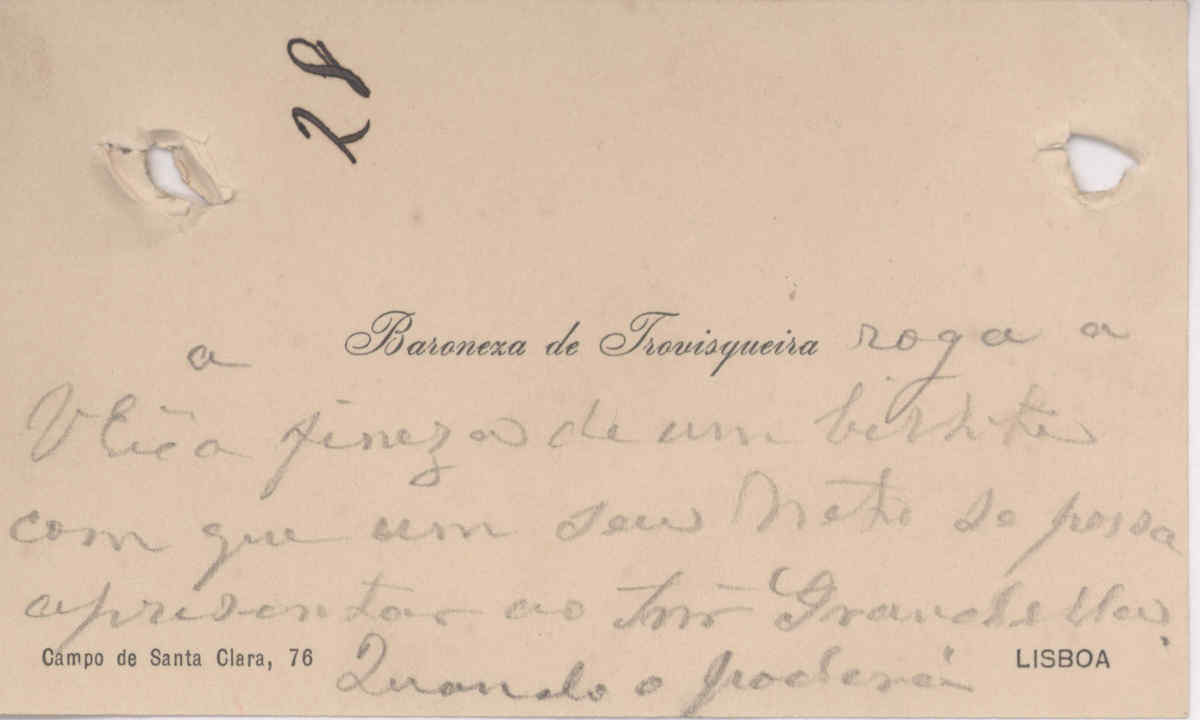 28
a Baroneza de Trovisqueira roga a
V Exca fineza de um bilhete
com que um seu Neto se possa
apresentar ao Snr Grandella.
Campo de Santa Clara, 76 Quando o poderá LISBOA